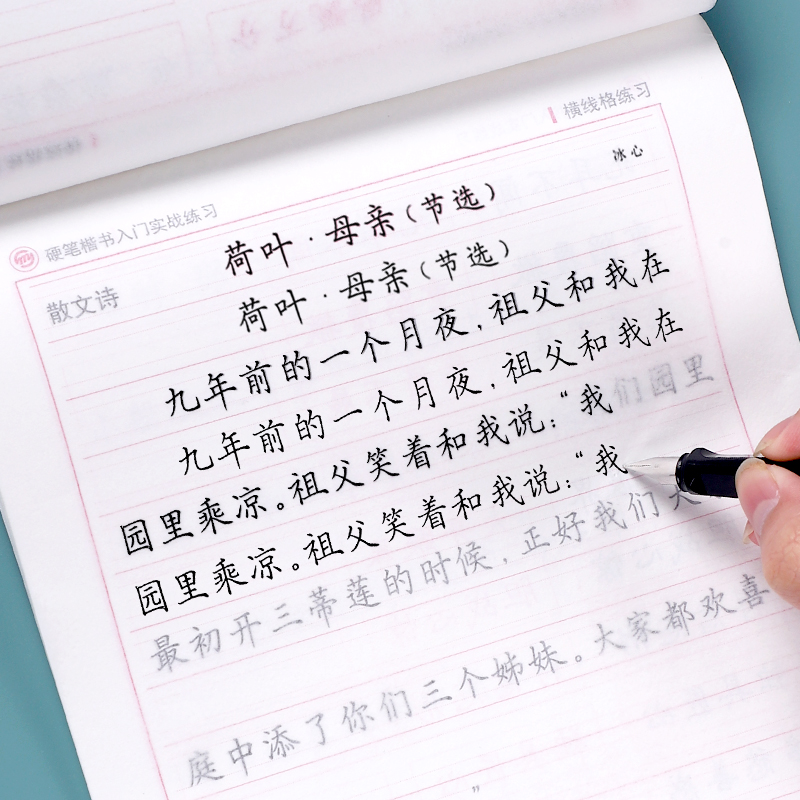 横线格练习
硬笔楷书入门实战练习
冰心
散文诗
荷叶·母亲（节选）
荷叶·母亲（节选）
九年前的一个月夜，祖父和我在
九年前的一个月夜，祖父和我在
园里乘凉。祖父笑着和我说：“我们园里
园里乘凉。祖父笑着和我说：“我
最初开三蒂莲的时候，正好我们大
庭中添了你们三个姊妹。大家都欢喜
”